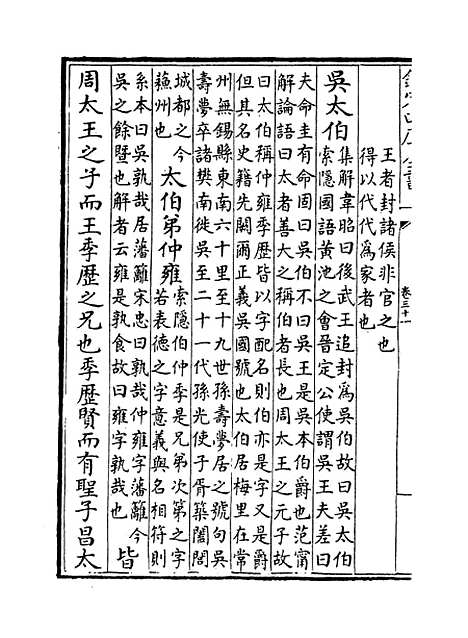 卷三十一
王者封諸侯非官之也
得以代代為家者也
吳太伯
集解韋昭曰後武王追封為吳伯故曰吳太伯
索隱國語黄池之會晉定公使謂吳王夫差曰
夫命圭有命固曰吳伯不曰吳王是吳本伯爵也范甯
解論語曰太者善大之稱伯者長也周太王之元子故
曰太伯稱仲雍季歴皆以字配名則伯亦是字又是爵
但其名史籍先闕爾正義吳國號也太伯居梅里在常
州無錫縣東南六十里至十九世孫壽夢居之號句吳
壽夢卒諸樊南徙吳至二十一代孫光使子胥築闔閭
城都之今
蘇州也
太伯弟仲雍
索隱伯仲季是兄弟次第之字
若表德之字意義與名相符則
系本曰吳孰哉居藩籬宋忠曰孰哉仲雍字藩籬今
吳之餘暨也解者云雍是孰食故曰雍字孰哉也
皆
周太王之子而王季歴之兄也季歴賢而有聖子昌太